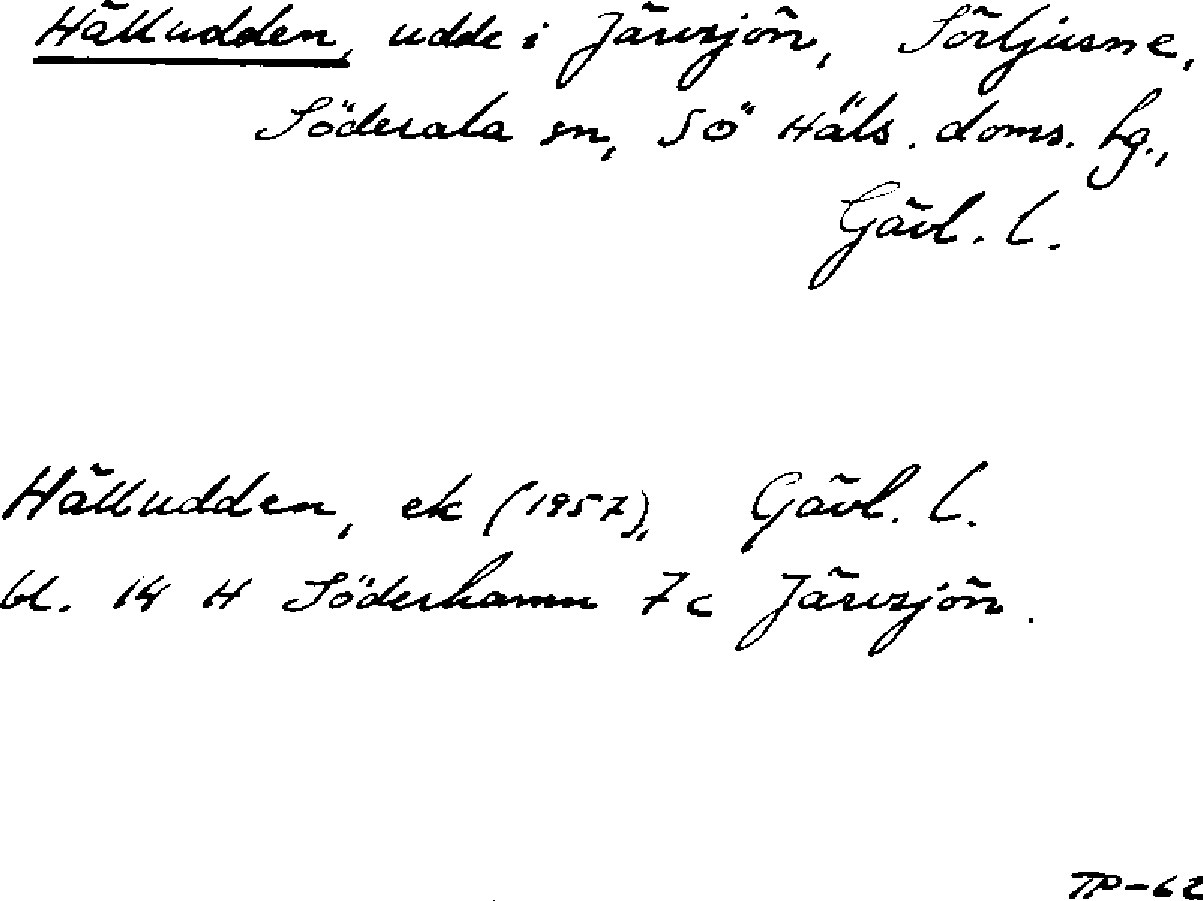 Hälludden, udde i Järvsjön, Sörljusne,
Söderala sn, SÖ Häls. doms. hg.,
Gävl. l.
Hälludden, ek (1957), Gävl. l.
bl. 14 H Söderhamn 7c Järvsjön.
TP-62